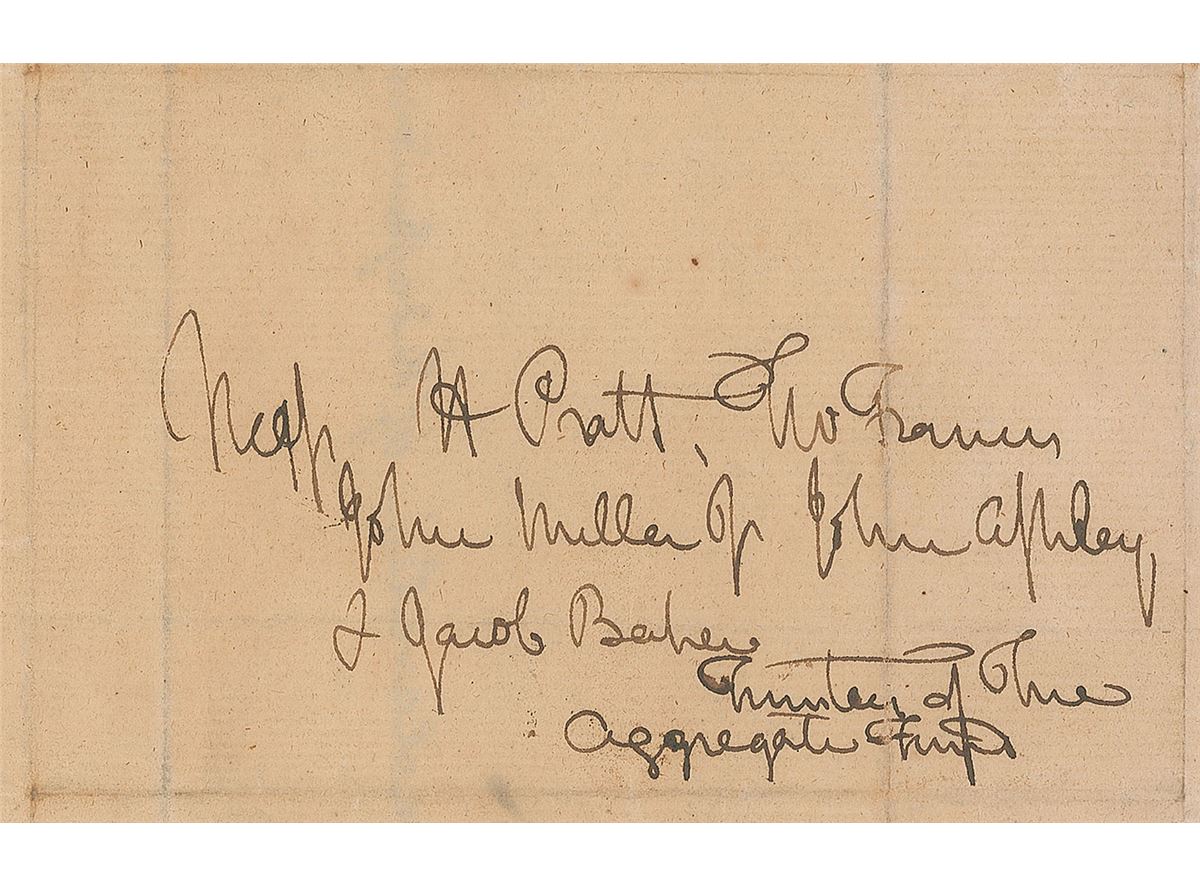 Messrs H Pratt, Tho Francis
John Miller Jr John Ashley,
& Jacob Baker
Trustees of The
Aggregate Fund